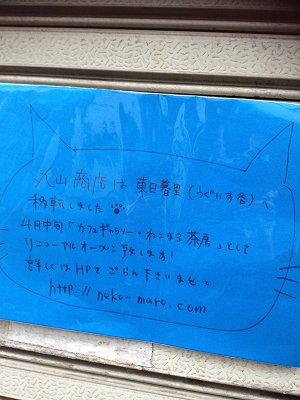 丸山商店は 東日暮里(うぐいす谷)、
移転しました
4月中旬「カフェギャラリー・ねこまる茶房」として
リニューアルオープン予定します!
詳しくはHPをごらん下さいませ。
http://neko-maru.com